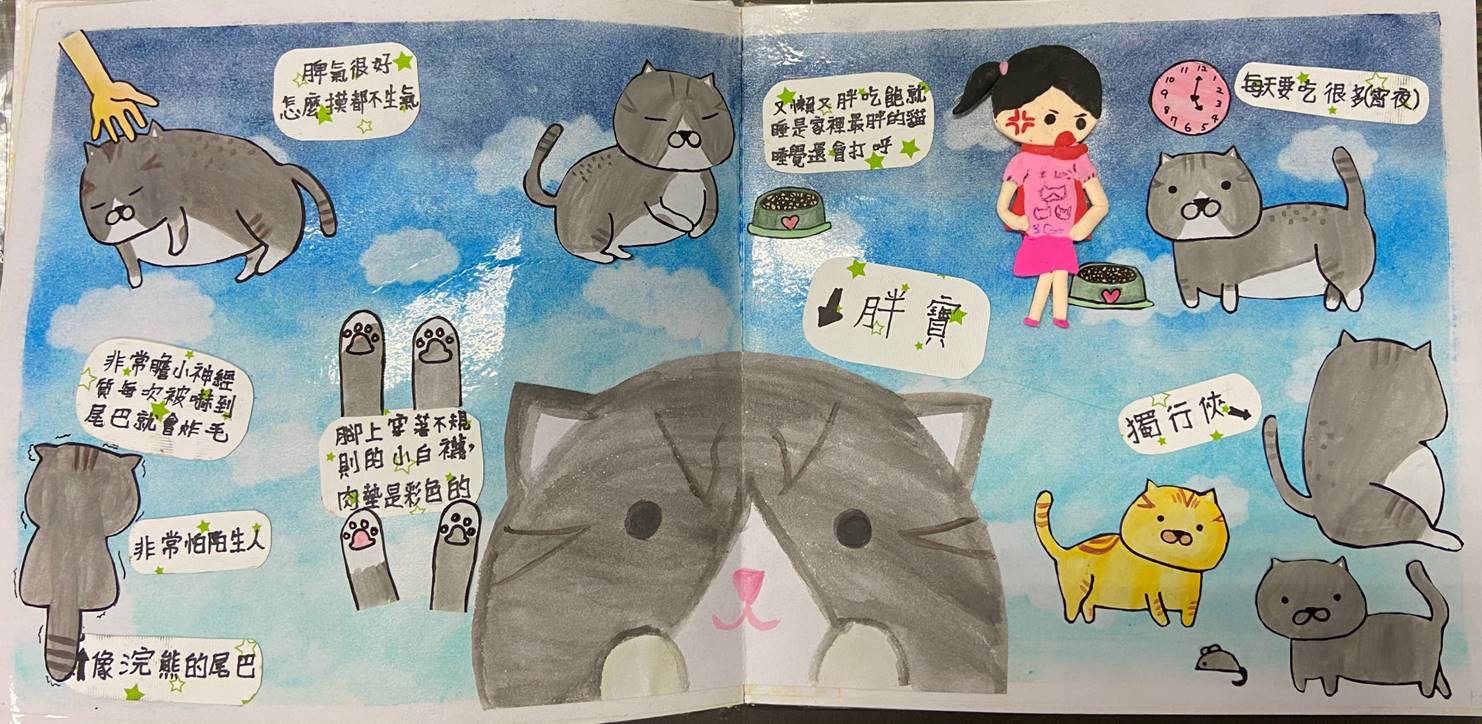 脾氣很好
怎麼摸都不生氣
非常膽小神經
質每次被嚇到
尾巴就會炸毛
非常怕陌生人
像浣熊的尾巴
腳上穿著不規
則的小白襪,
肉墊是彩色的
又懶又胖吃飽就
睡是家裡最胖的貓
睡覺還會打呼
胖寶
12
1
2
3
4
5
6
7
8
9
10
11
每天要吃很多(宵夜)
獨行俠